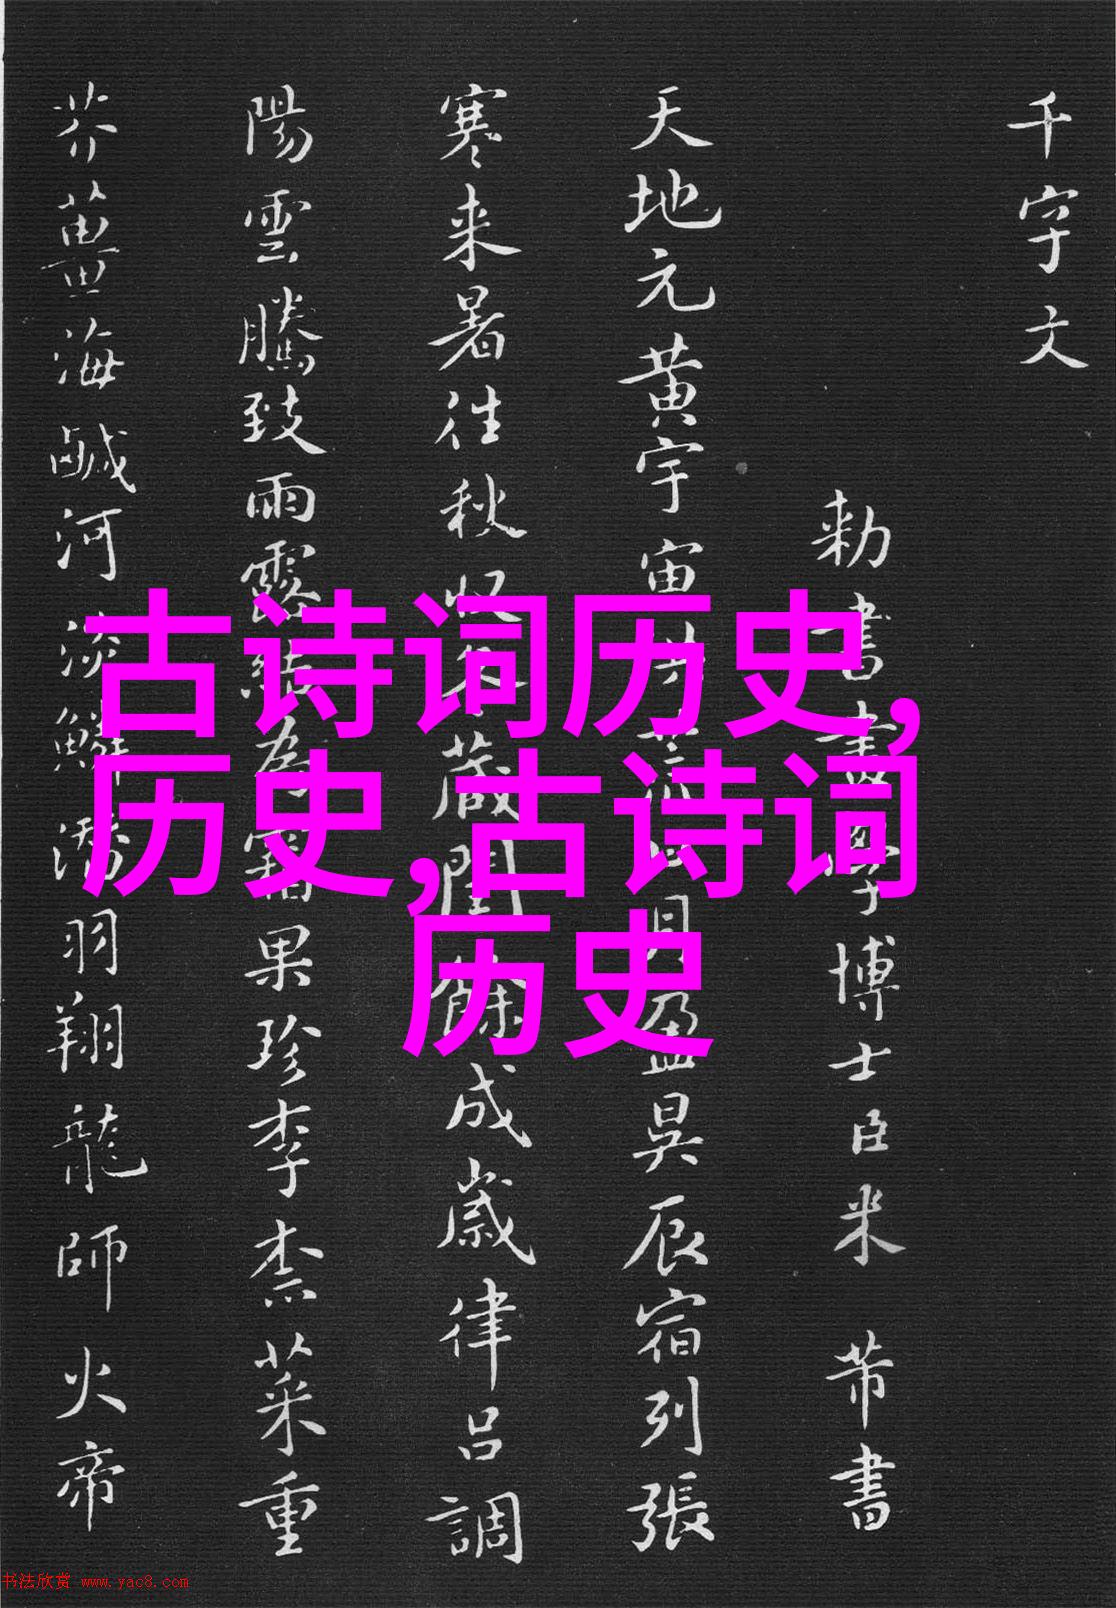 千字文
勅書畫學博士臣米芾書
天地元黄宇宙洪荒日月盈昃辰宿列張
寒来暑往秋収冬蔵閏餘成嵗律呂調
陽雲騰致雨露結為霜果珍李柰菜重
芥薑海鹹河淡鱗潛羽翔龍師火帝
古诗词历史,
历史,古诗词
历史
书法欣赏 www.yac8.com